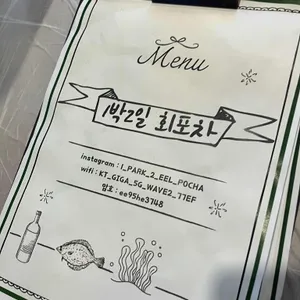 Menu
1박2일 회포차
instagram : 1_PARK_2_EEL_POCHA
wifi : KT_GIGA_5G_WAVE2_77EF
암호 : ee95he3748